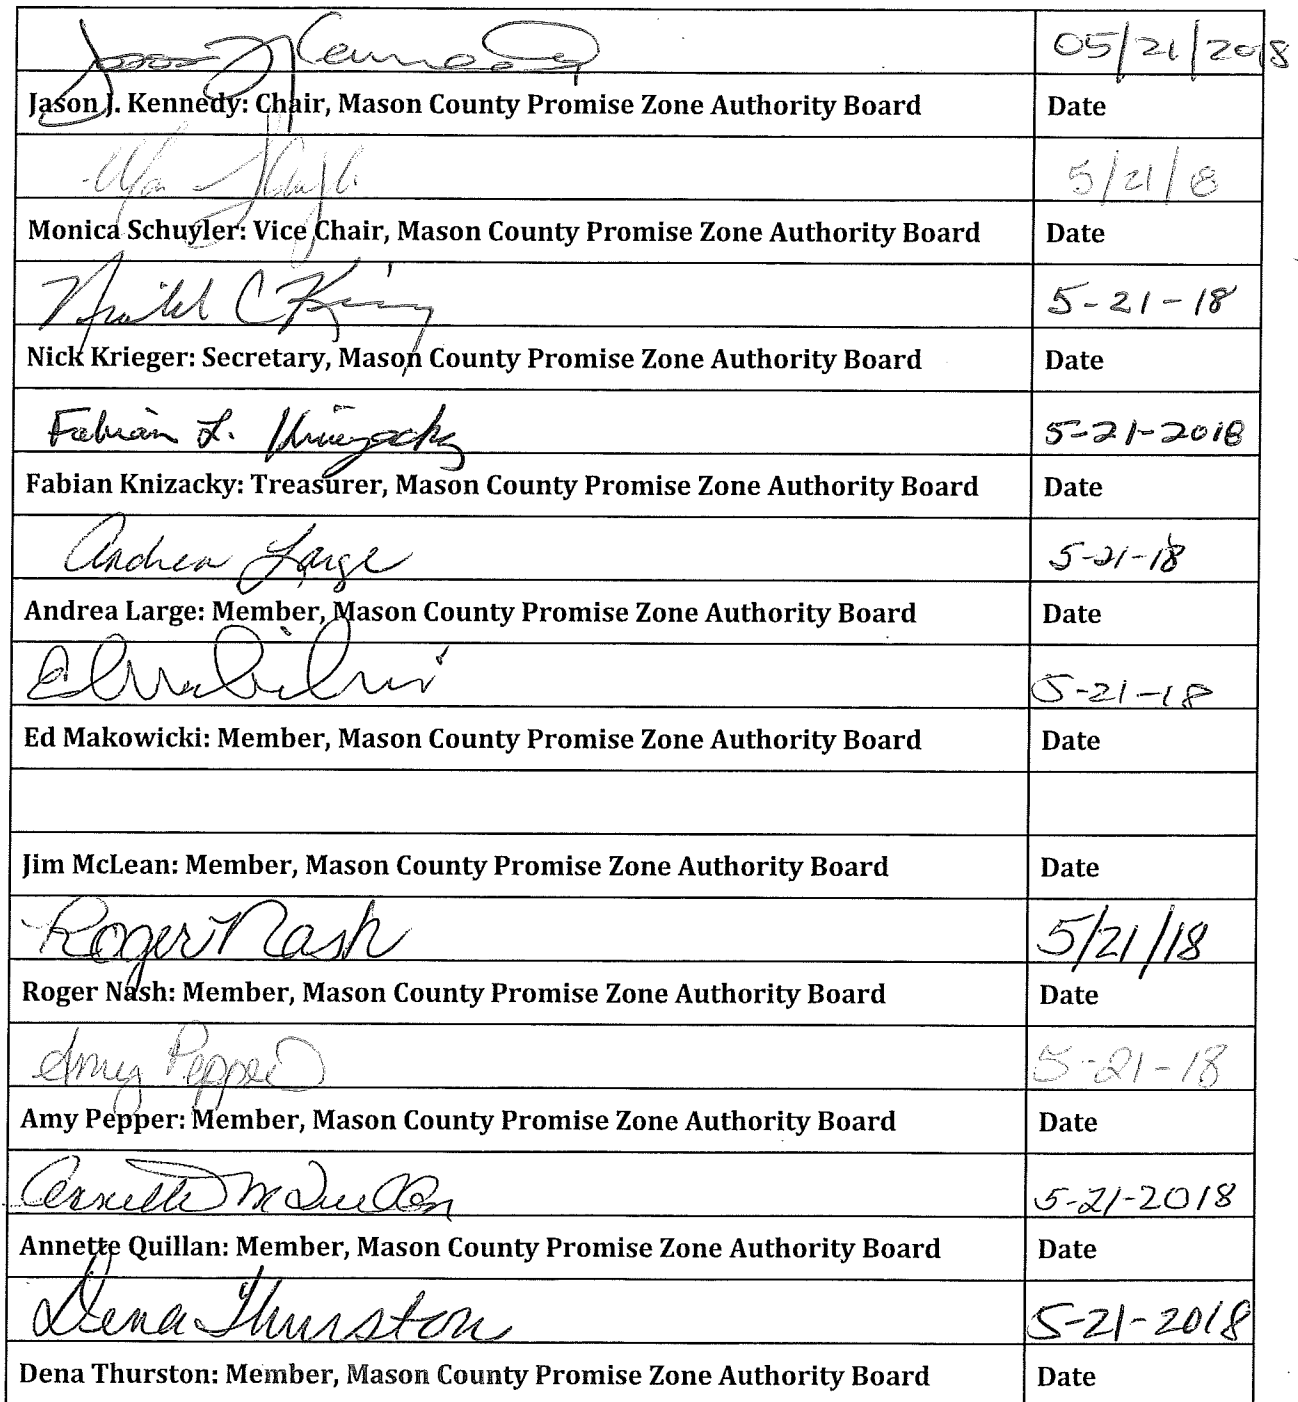 Jason J Kennedy 05/21/2018
Jason J. Kennedy: Chair, Mason County Promise Zone Authority Board Date
5/21/18
Monica Schuyler: Vice Chair, Mason County Promise Zone Authority Board Date
5-21-18
Nick Krieger: Secretary, Mason County Promise Zone Authority Board Date
Fabian L. Knizacky 5-21-2018
Fabian Knizacky: Treasurer, Mason County Promise Zone Authority Board Date
Andrea Large 5-21-18
Andrea Large: Member, Mason County Promise Zone Authority Board Date
5-21-18
Ed Makowicki: Member, Mason County Promise Zone Authority Board Date
Jim McLean: Member, Mason County Promise Zone Authority Board Date
Roger Nash 5/21/18
Roger Nash: Member, Mason County Promise Zone Authority Board Date
Amy Pepper 5-21-18
Amy Pepper: Member, Mason County Promise Zone Authority Board Date
Annette M Quillan 5-21-2018
Annette Quillan: Member, Mason County Promise Zone Authority Board Date
Dena Thurston 5-21-2018
Dena Thurston: Member, Mason County Promise Zone Authority Board Date